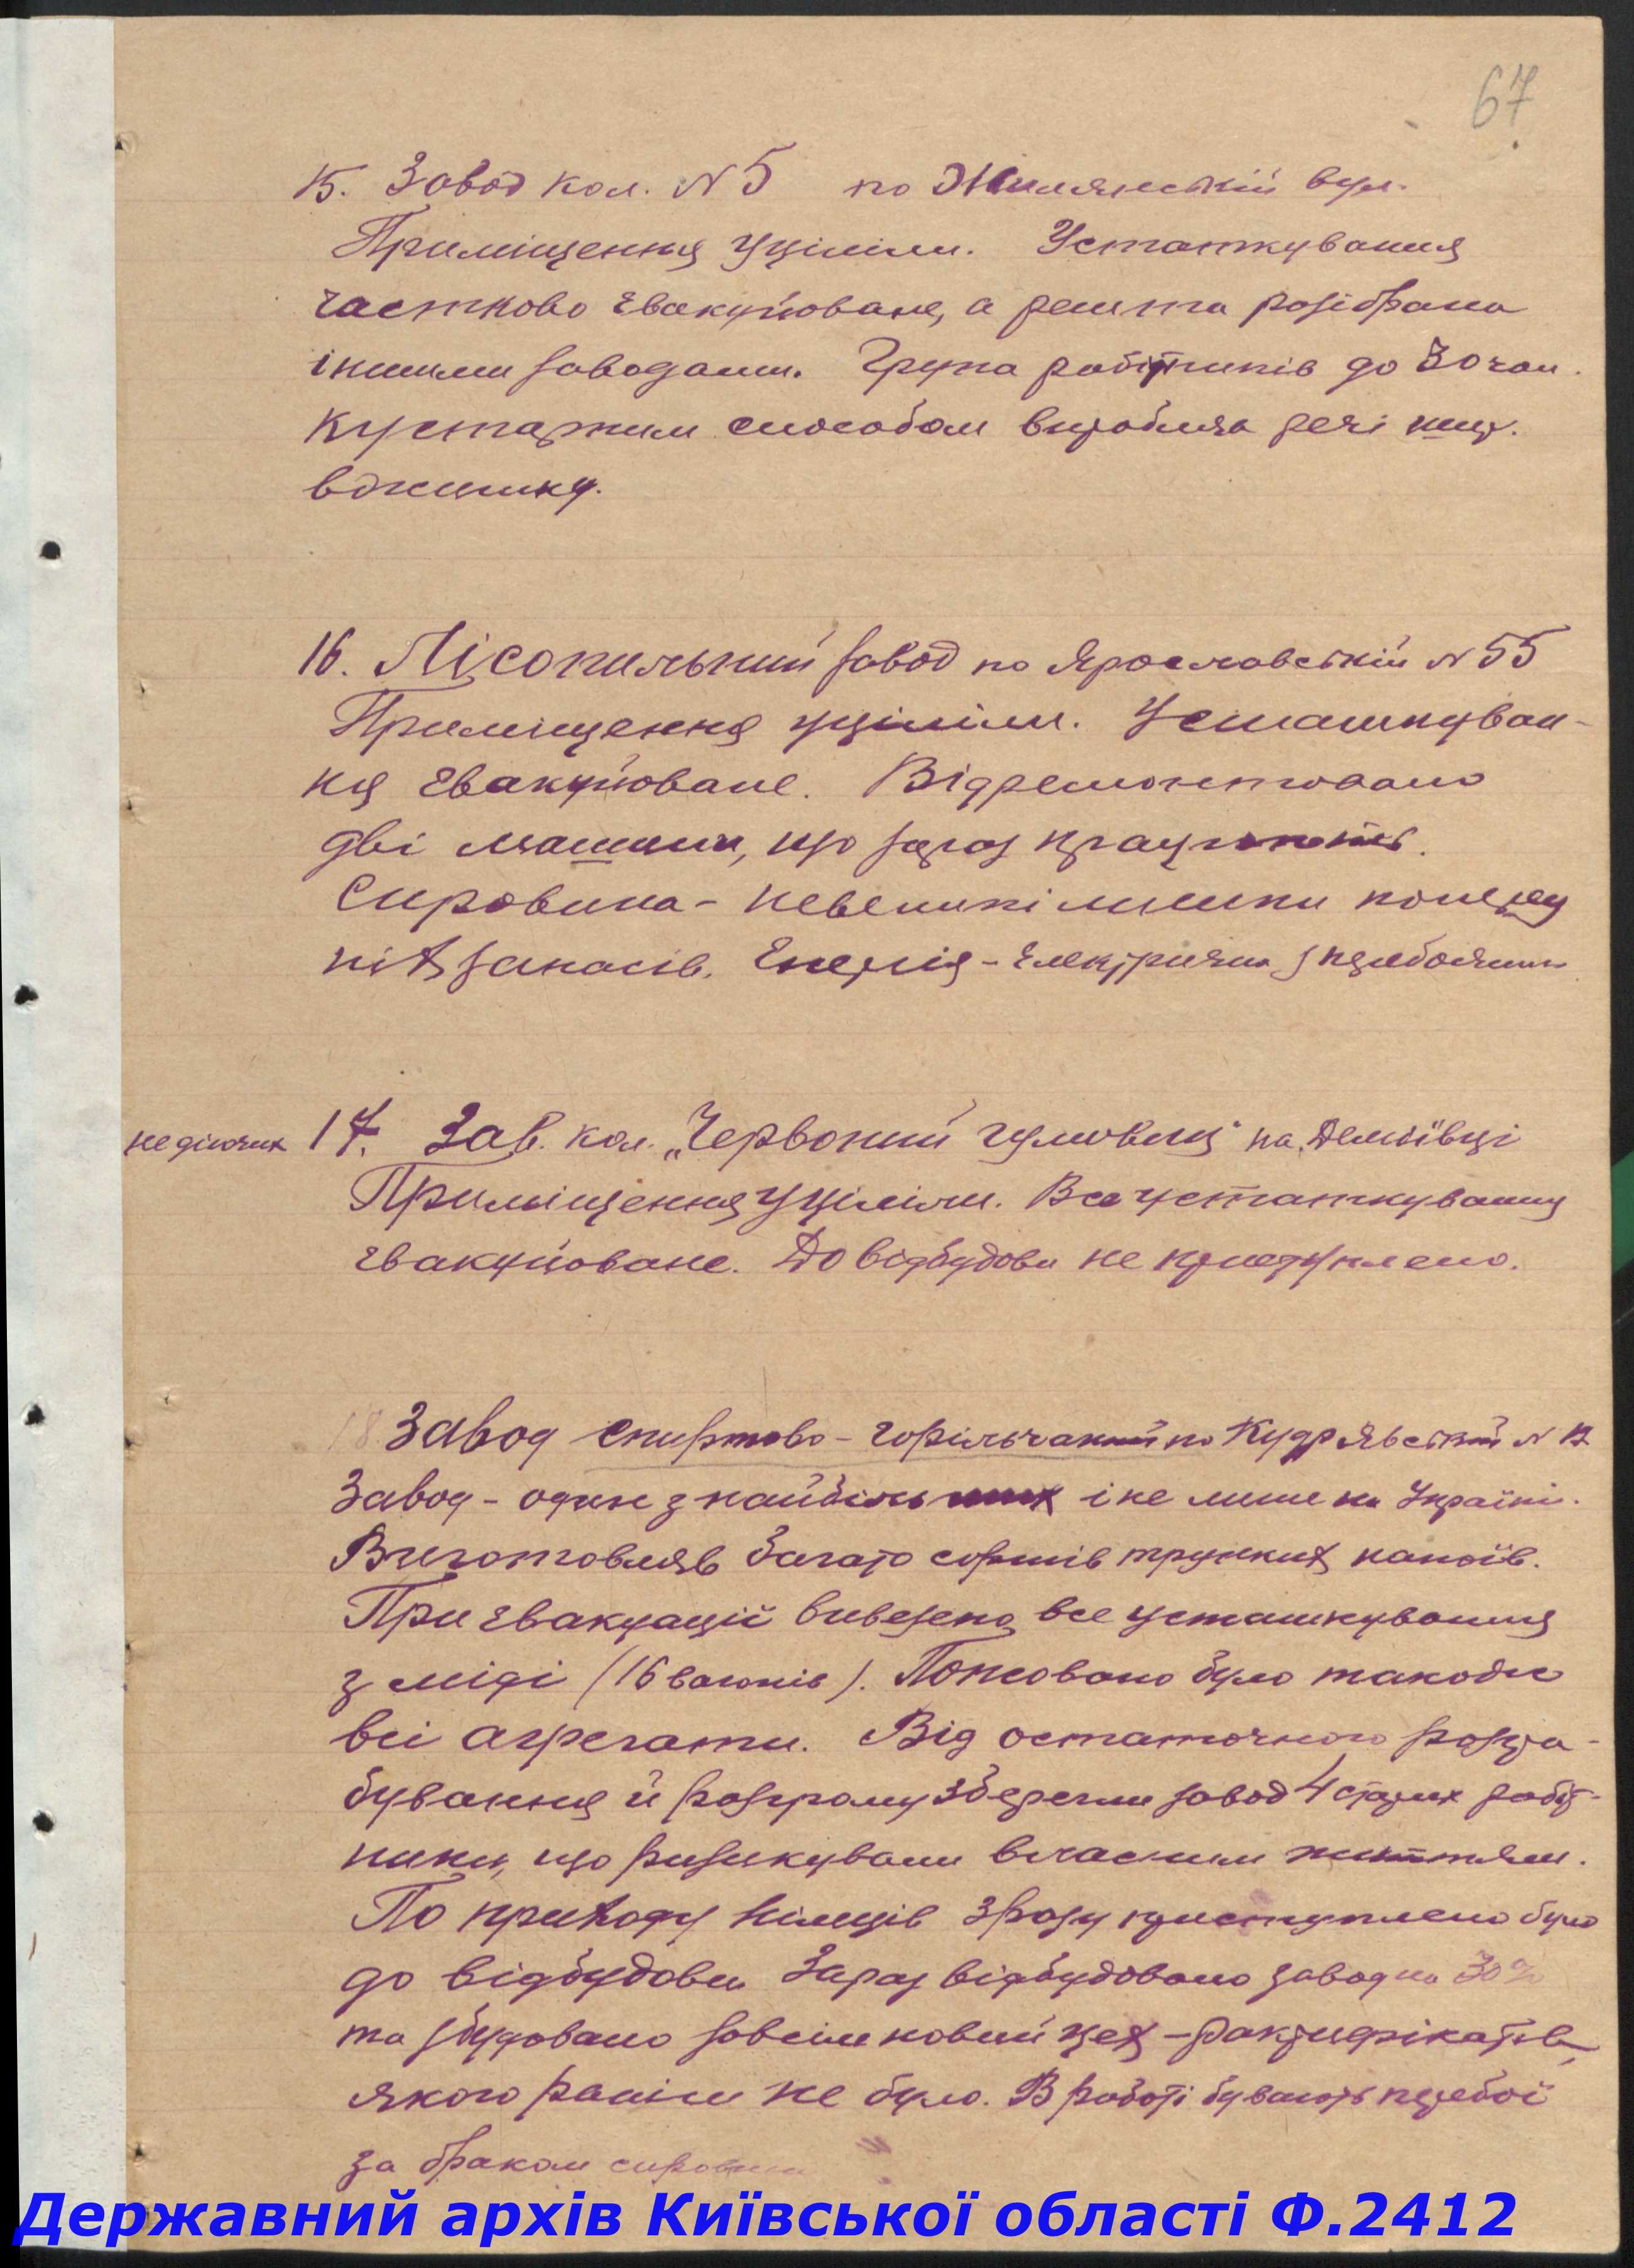 67
15. Завод кол. N 5 по Жилянській вул.
Приміщення уціліли. Устаткування
частково евакуйоване, а решта розібрана
іншими заводами. Група робітників до 30 чол.
кустарним способом виробля речі шир.
вжитку.
16. Лісопильний завод по Ярославській N 55
Приміщення уціліли. Устаткуван-
ня евакуйоване. Відремонтовано
дві машини, що зараз працюють.
Сировина - невеликі лишки поперед
ніх запасів. Енергія - електрична з перебоями
не діючих 17. Зав. кол. „Червоний гумовик" на Деміївці
Приміщення уціліли. Все устаткування
евакуйоване. До відбудови не приступлено.
18 Завод спиртово-горільчаний по Кудрявській N 12
Завод - один з найбільших і не лише на Україні.
Виготовляв багато сортів трунких напоїв.
При евакуації вивезено все усташкування
з міді (16 вагонів). Попсовано було також
всі агрегати. Від остаточного розгра-
бування й розгрому зберегли завод 4 старих робіт-
ники, що ризикували власним життям.
По приходу німців зразу приступлено було
до відбудови Зараз відбудовано завод на 30%
та збудовано зовсім новий цех - ректифікатів,
якого раніш не було. В роботі бувають перебої
за браком сировини
Державний архів Київської області Ф.2412